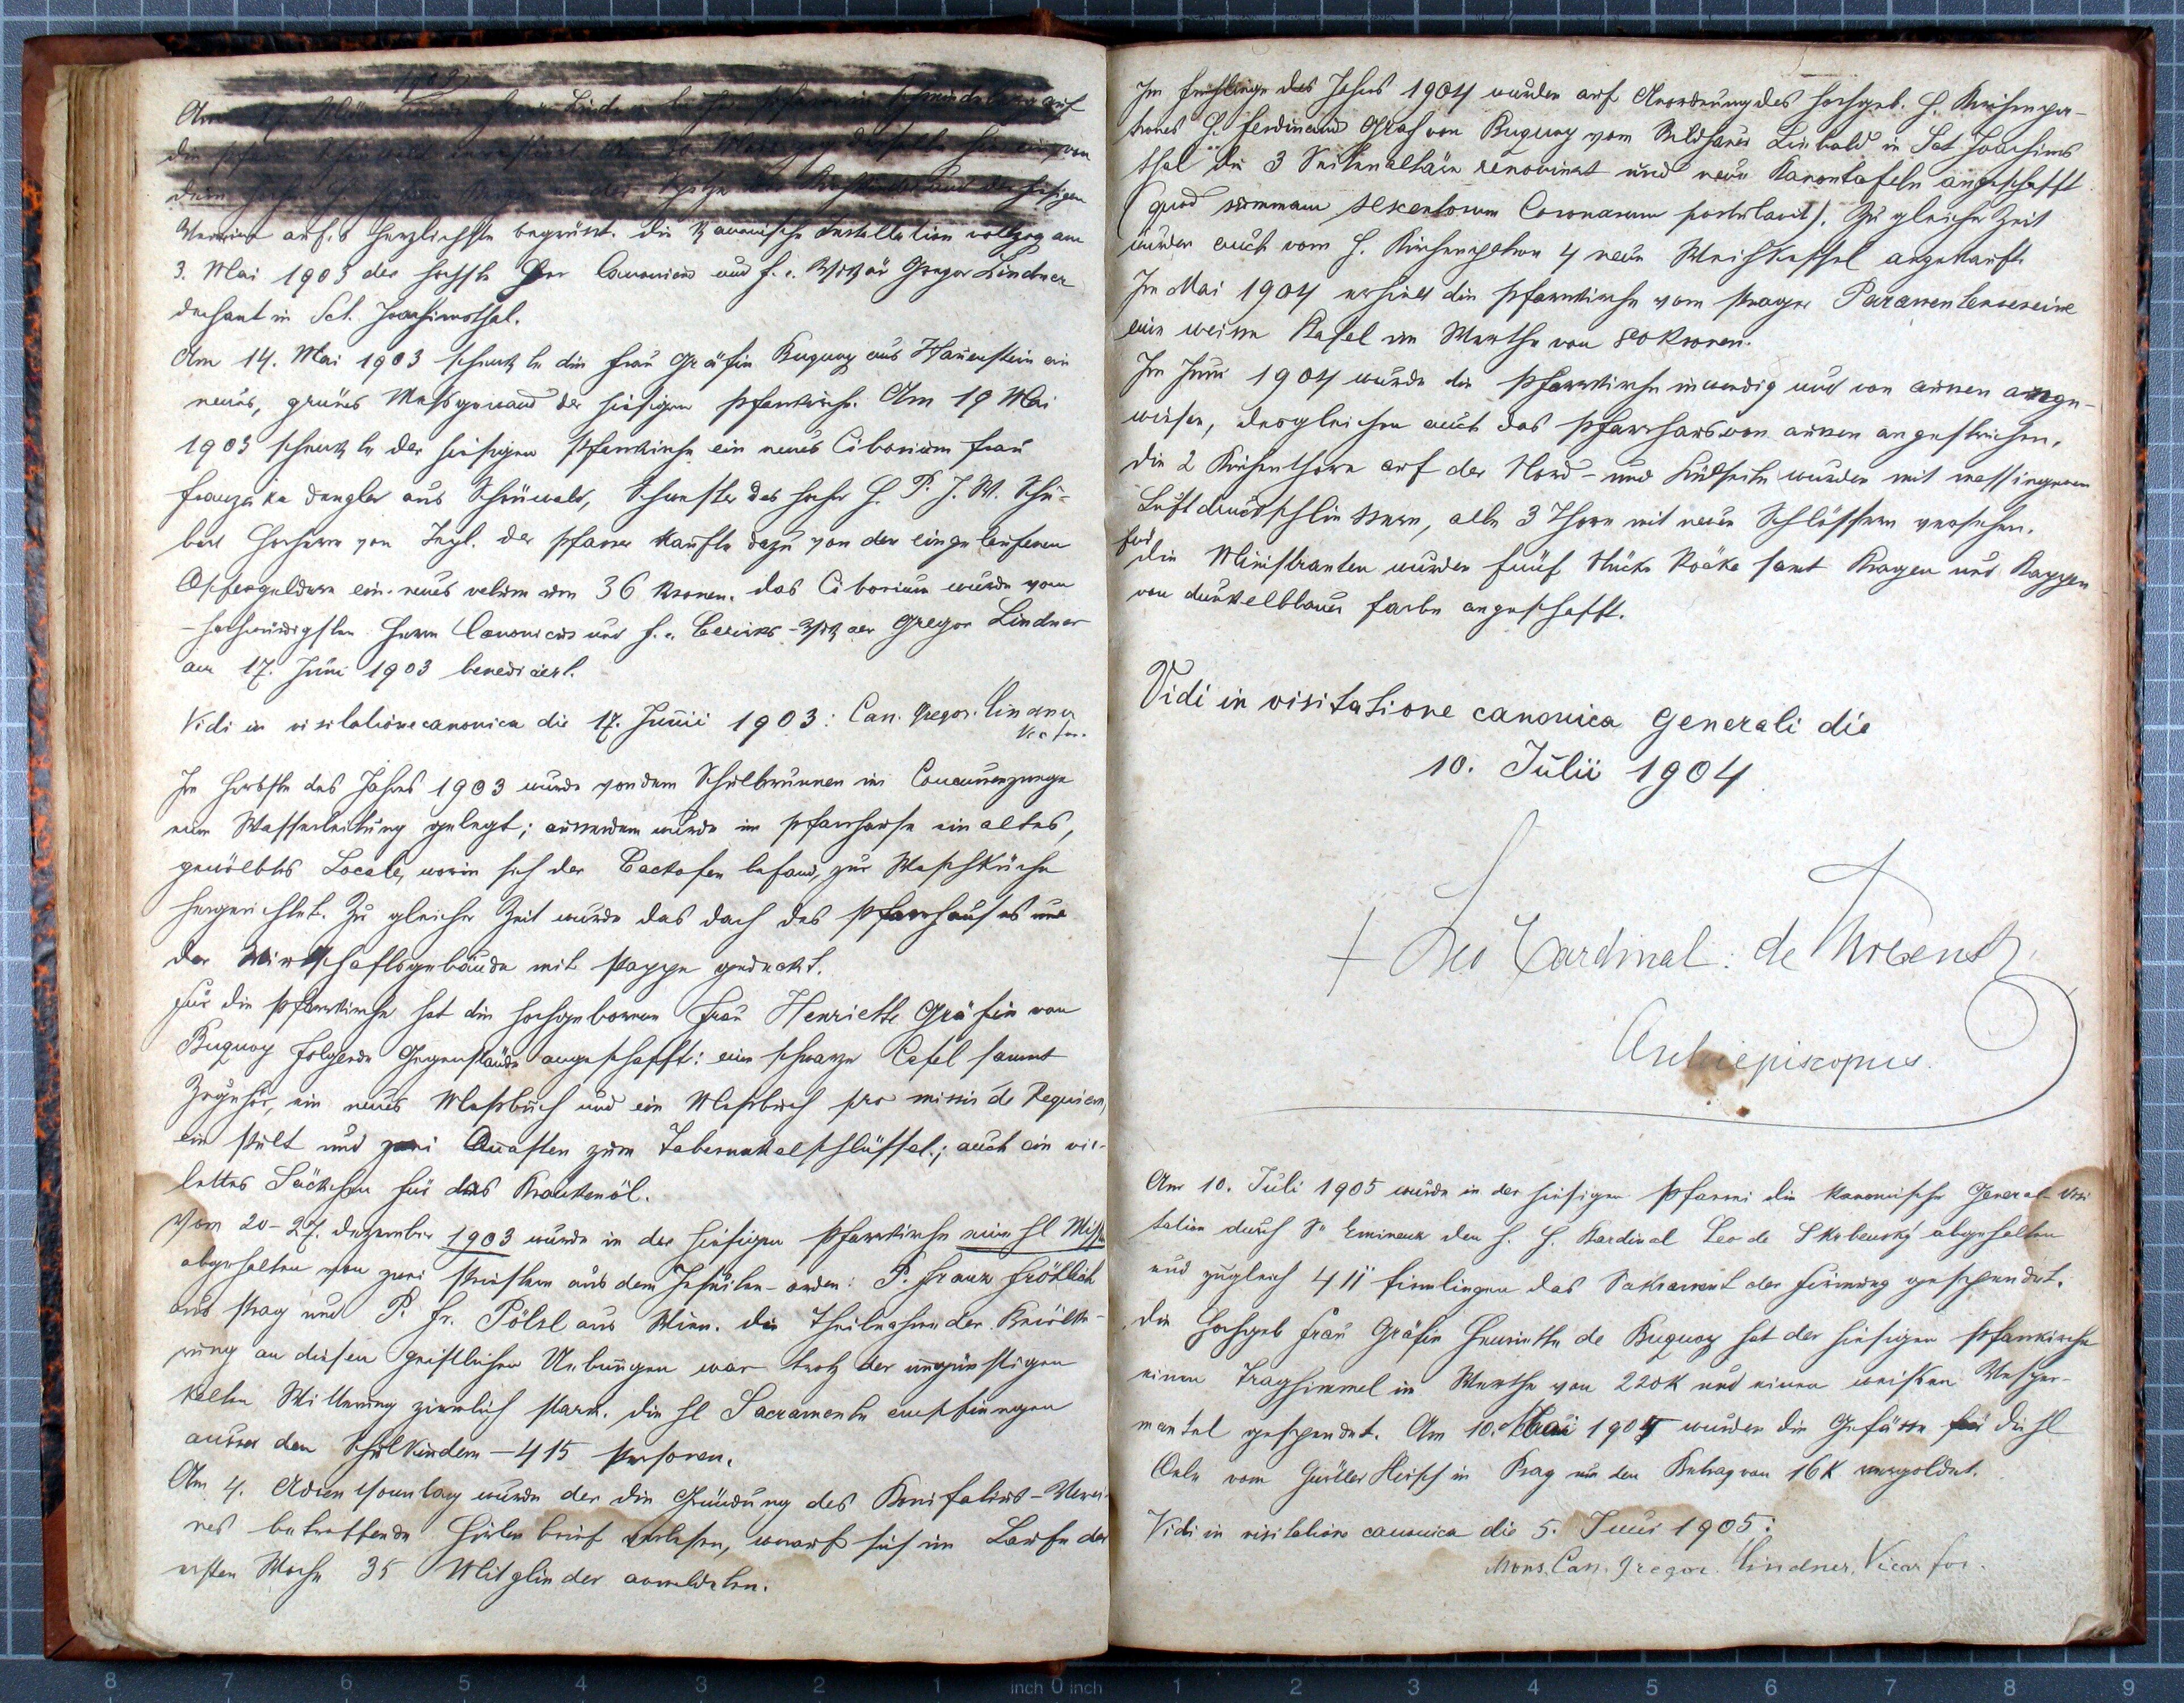 1903
Am
die
dem der Spitze der hiesigen
Vereine aufs herzlichste begrüsst. Die kanonische Installation vollzog am
3. Mai 1903 der hochste Herr Canonicus und f. e. Vikar Gregor Lindner
Dechant in Sct. Joachimsthal.
Am 14. Mai 1903 schenkte die Frau Gräfin Buquoy aus Hauenstein ein
neues, grünes Messgewand der hiesigen Pfarrkirche. Am 19 Mai
1903 schenkte der hiesigen Pfarrkirche ein neues Ciborium Frau
Franziska Dengler aus Schönwald, Schwester des hochw H. P. J. W. Schu-
bert Pfarrers von Der Pfarrer kaufte dazu von den eingelaufenen
Opfergeldern ein neues velum um 36 Kronen. Das Ciborium wurde vom
hochwürdigsten Herrn Canonicus und f. e. Bezirks-Vikar Gregor Lindner
am 17. Juni 1903 benediciert.
Vidi in visitatione canonica die 17. Junii 1903: Can. Gregor. Lindner
Vic. for.
Im Herbste des Jahres 1903 wurde von dem Schulbrunnen im Concurrenzwege
eine Wasserleitung gelegt; ausserdem wurde im Pfarrhause ein altes,
gewölbtes Locale, worin sich der Backofen befand, zur Waschküche
hergerichtet. Zu gleicher Zeit wurde das Dach des Pfarrhauses und
der Wirtschaftsgebäude mit Pappe gedeckt.
Für die Pfarrkirche hat die hochgeborene Frau Henriette Gräfin von
Buquoy folgende Gegenstände angeschafft: eine schwarze Casel sammt
Zugehör, ein neues Messbuch und ein Messbuch pro missis de Requiem,
ein Pult und zwei Quasten zum Tabernakelschlüssel; auch ein vio-
lettes Säckchen für das Krankenöl.
Vom 20-27. Dezember 1903 wurde in der hiesigen Pfarrkirche eine hl Mission
abgehalten von zwei Priestern aus dem Jesuiten-orden: P. Franz Fröhlich
aus Prag und P. Fr. Pölzl aus Wien. Die Theilnahme der Bevölke-
rung an diesen geistlichen Uebungen war trotz der ungünstigen
kalten Witterung ziemlich stark. Die hl Sacramente empfiengen
ausser den Schulkindern - 415 Personen.
Am 4. Adventsonntag wurde der die Gründung des Bonifatius-Verei-
nes betreffende Hirtenbrief verlesen, worauf sich im Laufe der
ersten Woche 35 Mitglieder anmeldeten.
Im Frühlinge des Jahres 1904 wurden auf Anordnung des hochgeb. H. Kirchenpa-
trones H. Ferdinand Graf von Buquoy vom Bildhauer Liebald in Sct Joachims
thal die 3 Seitenaltäre renovirt und neue Kanontafeln angeschafft
(quod summam sexcentorum Coronarum postulavit). Zu gleicher Zeit
wurden auch vom H. Kirchenpatron 4 neue Weihkessel angekauft.
Im Mai 1904 erhielt die Pfarrkirche vom Prager Paramentenvereine
eine weisse Kasel im Werthe von 80 Kronen.
Im Juni 1904 wurde die Pfarrkirche inwendig und von aussen ange-
wiesen, desgleichen auch das Pfarrhaus von aussen angestrichen.
Die 2 Kirchenthore auf der Nord- und Südseite wurden mit messingenen
Luftdruckschliessern, alle 3 Thore mit neuen Schlössern versehen.
Für
die Ministranten wurden fünf Stück Röcke samt Kragen und Kappen
von dunkelblauer Farbe angeschafft.
Vidi in visitatione canonica generali die
10. Julii 1904
+ Leo Cardinal: de Skrbensky
Archiepiscopus.
Am 10. Juli 1905 wurde in der hiesigen Pfarrei die kanonische General-Visi
tation durch Se Eminenz den h. H. Kardinal Leo de Skrbensky abgehalten
und zugleich 411 Firmlingen das Sakrament der Firmung gespendet.
Die Hochgeb Frau Gräfin Henriette de Buquoy hat der hiesigen Pfarrkirche
einen Traghimmel im Werthe von 220K und einen weissen Vesper-
mantel gespendet. Am 10. Mai 1905 wurden die Gefässe für die hl
Oele vom Gürtler in Prag um den Betrag von 16K vergoldet.
Vidi in visitatione canonica die 5. Juni 1905:
Mons. Can. Gregor. Lindner, Vicar for.